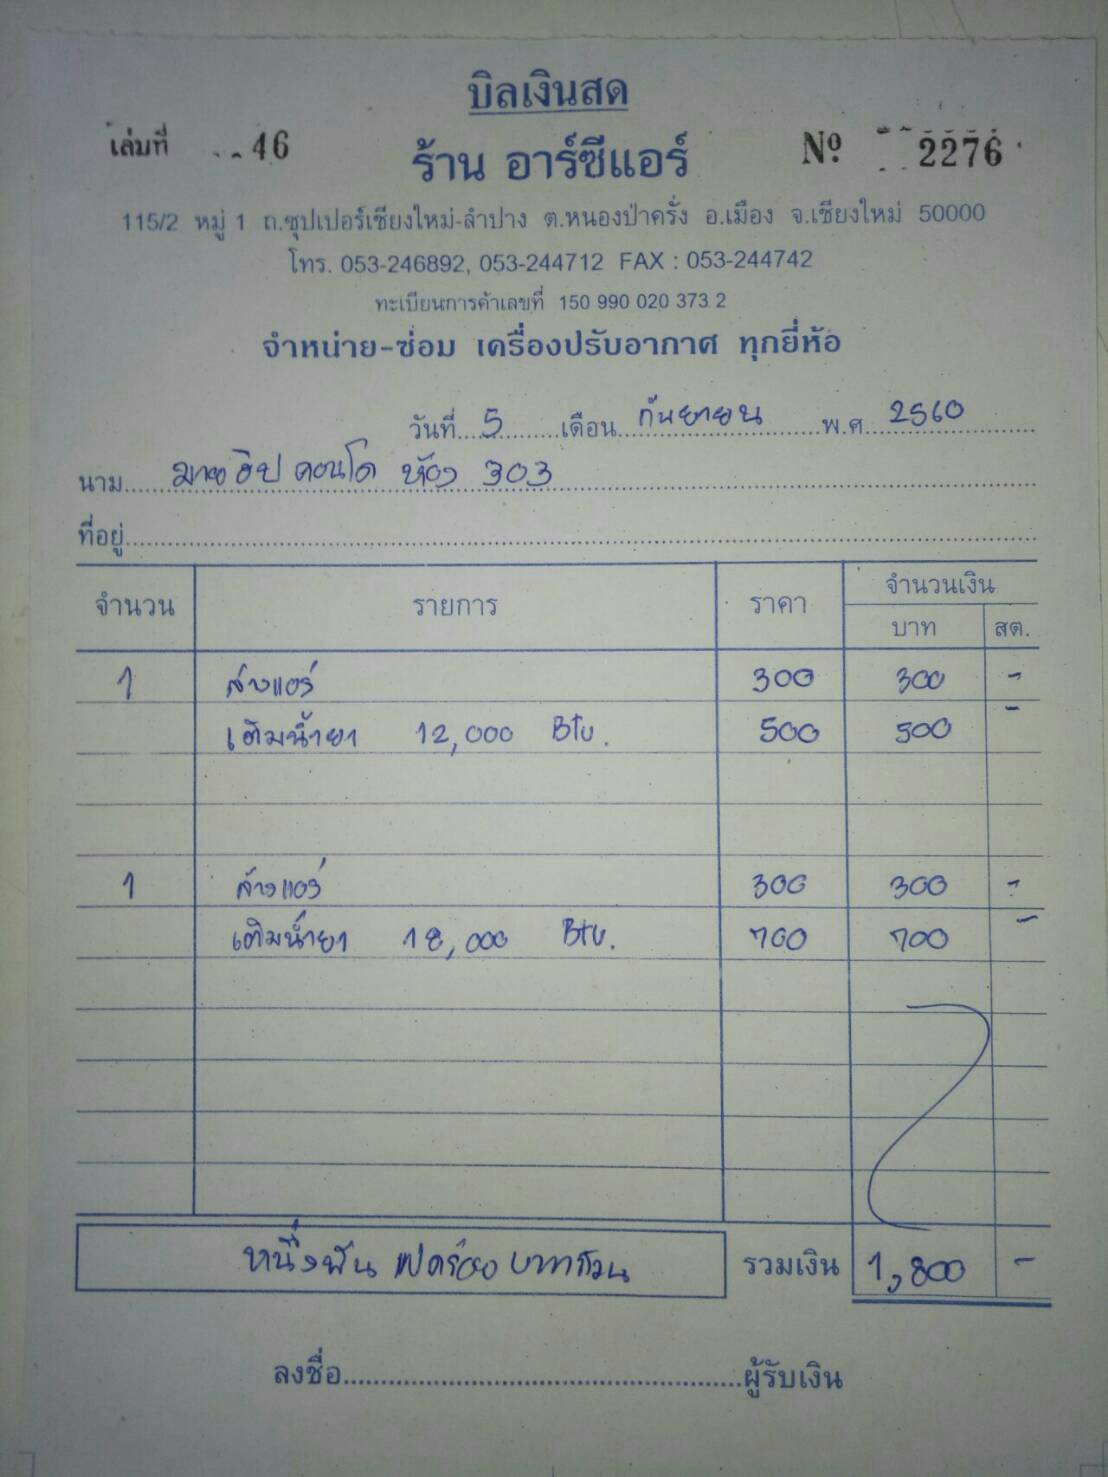 บิลเงินสด
เล่มที่ 46 ร้าน อาร์ซีแอร์ Nº 2276
115/2 หมู่ 1 ถ.ซุปเปอร์เชียงใหม่-ลำปาง ต.หนองป่าครั่ง อ.เมือง จ.เชียงใหม่ 50000
โทร. 053-246892, 053-244712 FAX : 053-244742
ทะเบียนการค้าเลขที่ 150 990 020 373 2
จำหน่าย-ซ่อม เครื่องปรับอากาศ ทุกยี่ห้อ
วันที่ 5 เดือน กันยายน พ.ศ. 2560
นาม มายฮิป คอนโด ห้อง 303
ที่อยู่
จำนวน รายการ ราคา จำนวนเงิน
บาท สต.
1 ล้างแอร์ 300 300 -
เติมน้ำยา 12,000 Btu. 500 500 -
1 ล้างแอร์ 300 300 -
เติมน้ำยา 18,000 Btu. 700 700 -
หนึ่งพันแปดร้อยบาทถ้วน รวมเงิน 1,800 -
ลงชื่อ ผู้รับเงิน